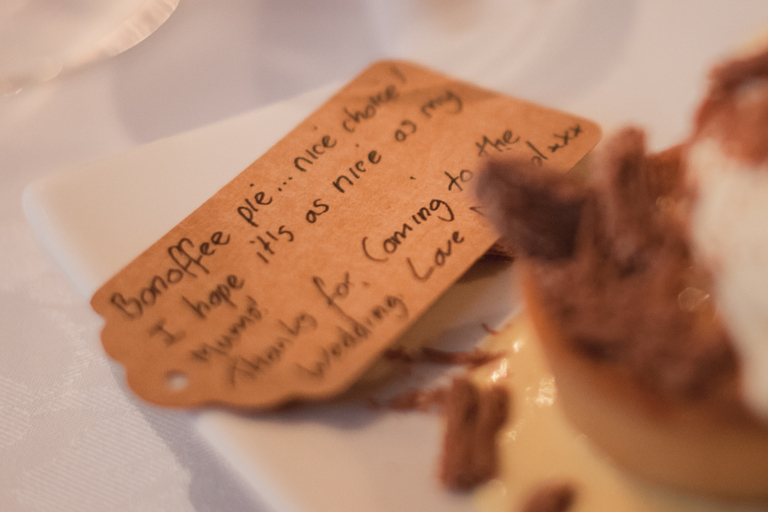 Bonoffee pie... nice choice!
I hope it's as nice as my
Mums!
Thanks for coming to the
Wedding Love